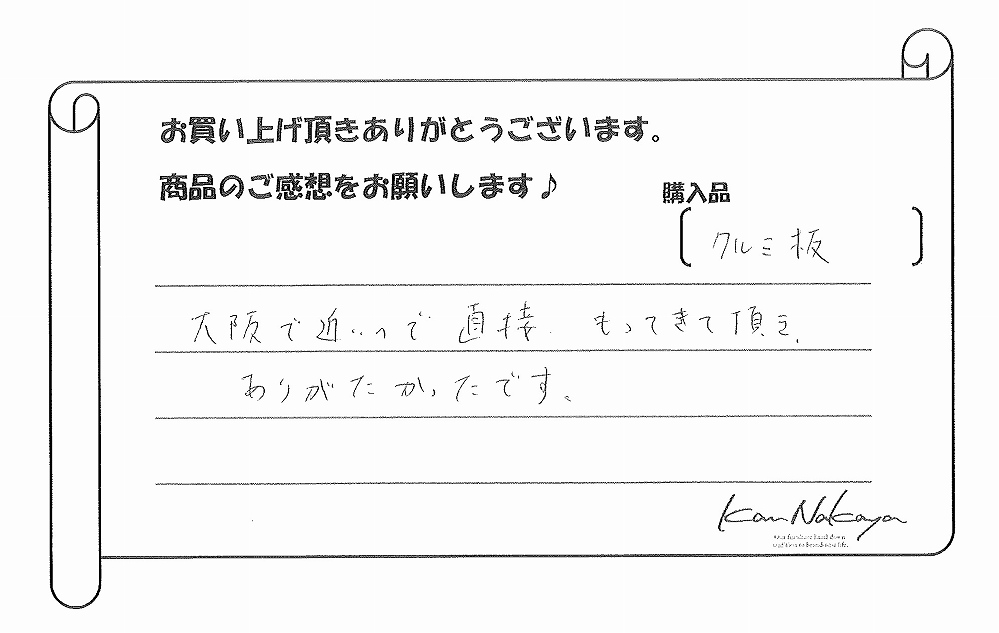 お買い上げ頂きありがとうございます。
商品のご感想をお願いします♪
購入品
クルミ板
大阪で近いので直接、もってきて頂き、
ありがたかったです。
Kan Nakaya